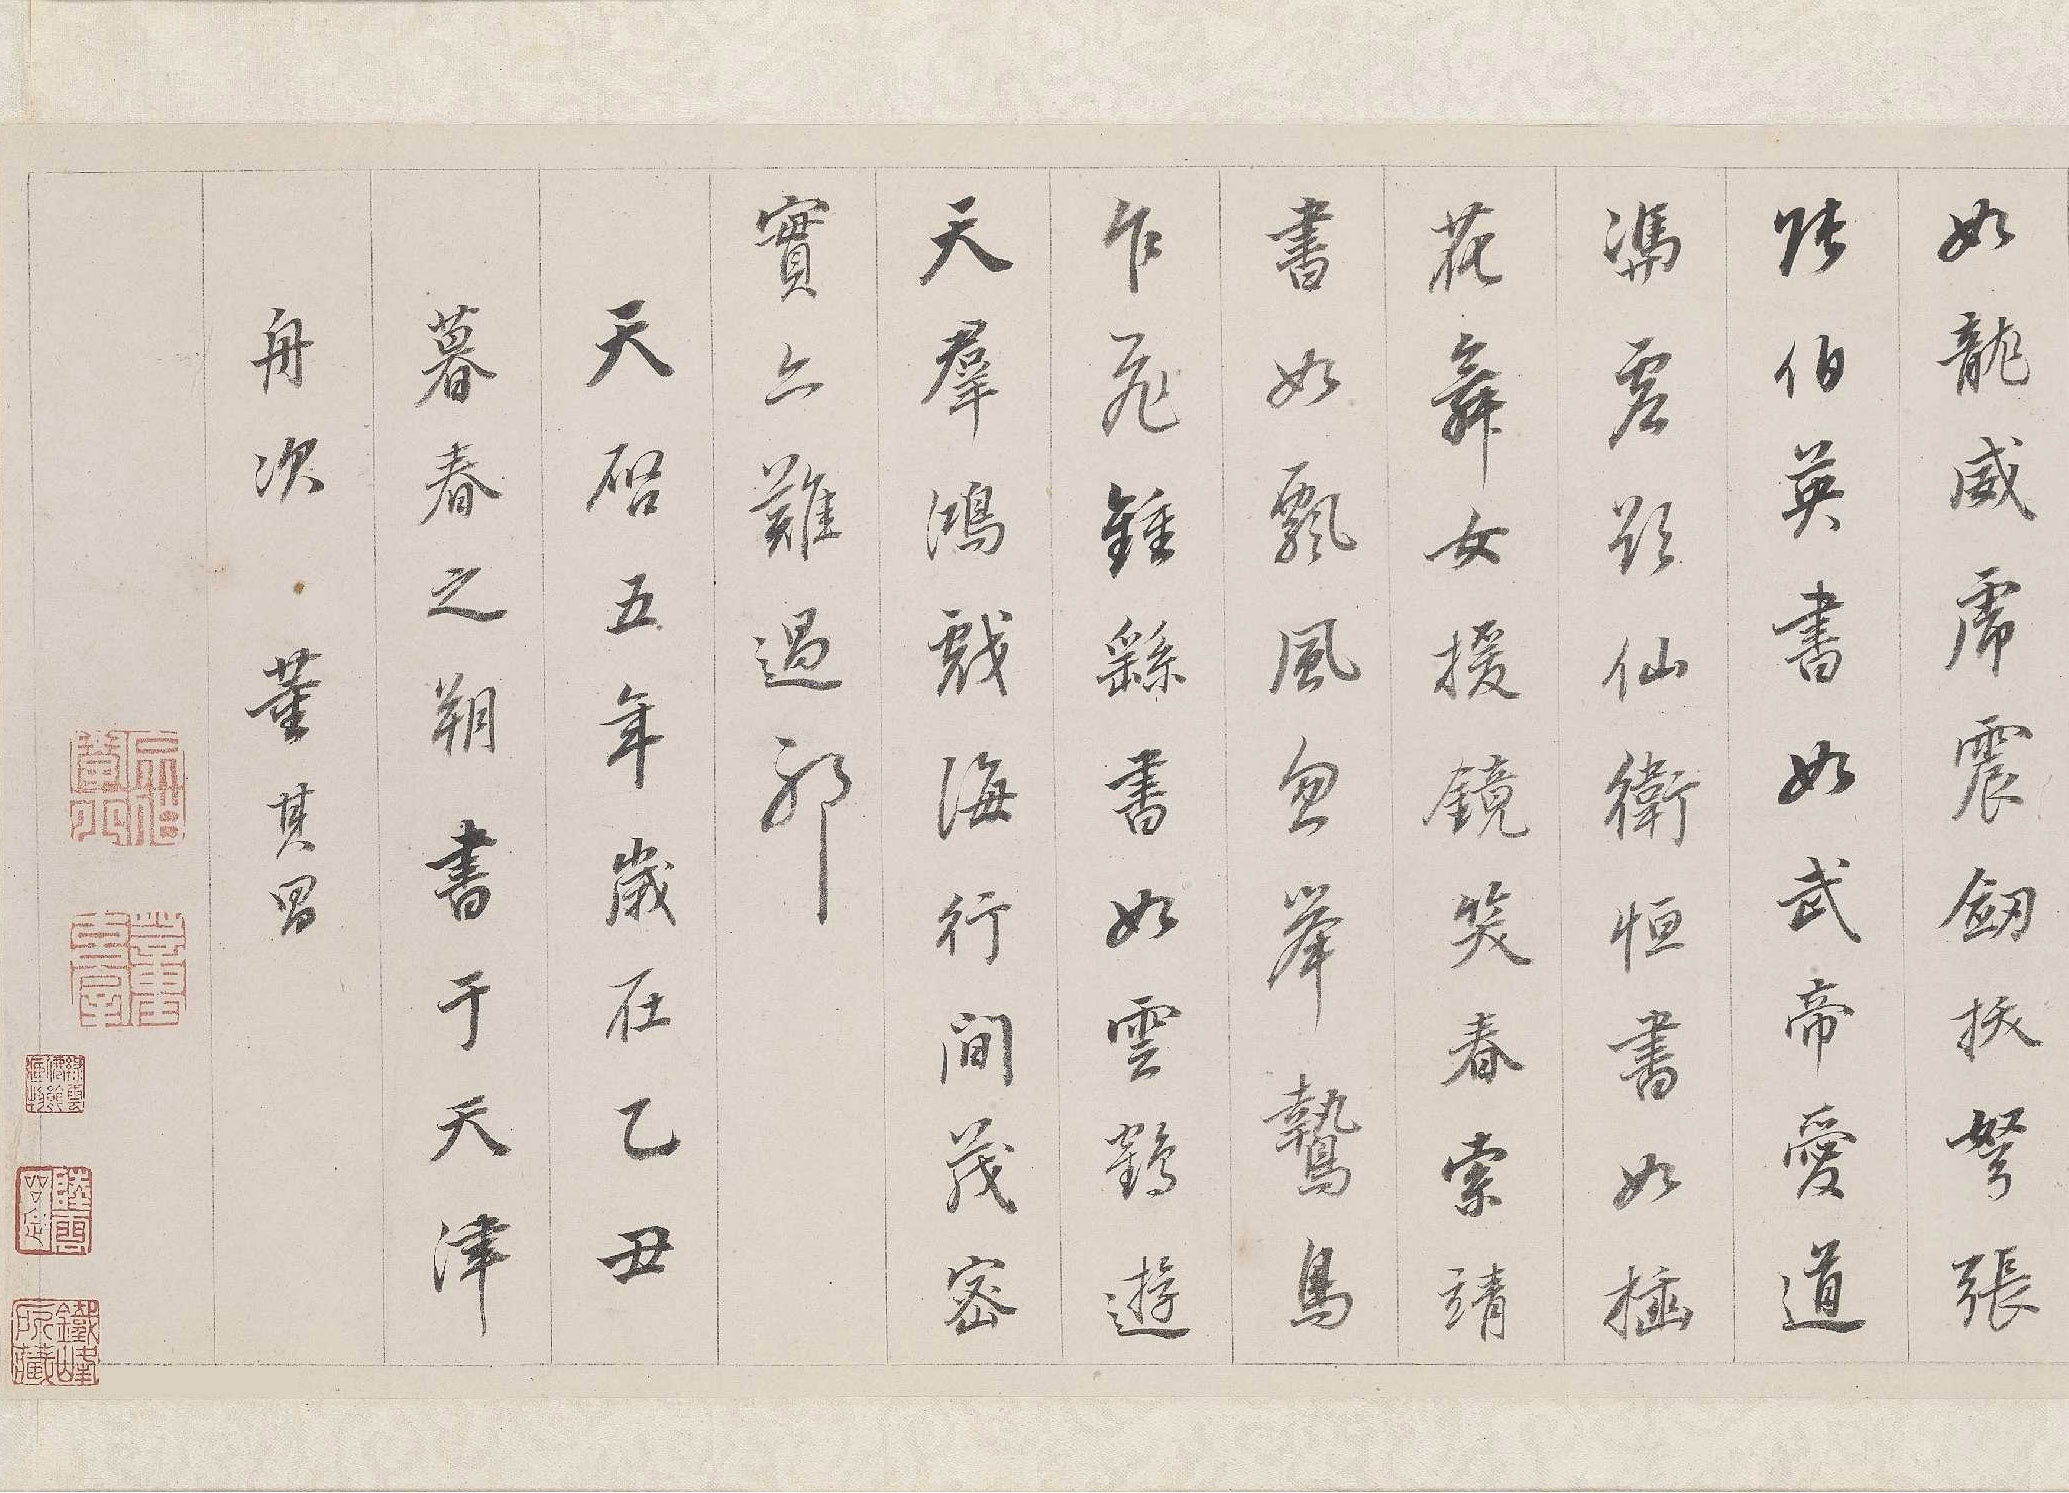 如龍威虎震劒拔弩張
張伯英書如武帝愛道
馮虛欲仙衛恒書如插
花舞女援鏡笑春索靖
書如飄風忽舉鷙鳥
乍飛鍾繇書如雲鵠遊
天羣鴻戲海行間茂密
實亦難過耶
天啓五年歲在乙丑
暮春之朔書于天津
舟次 董其昌